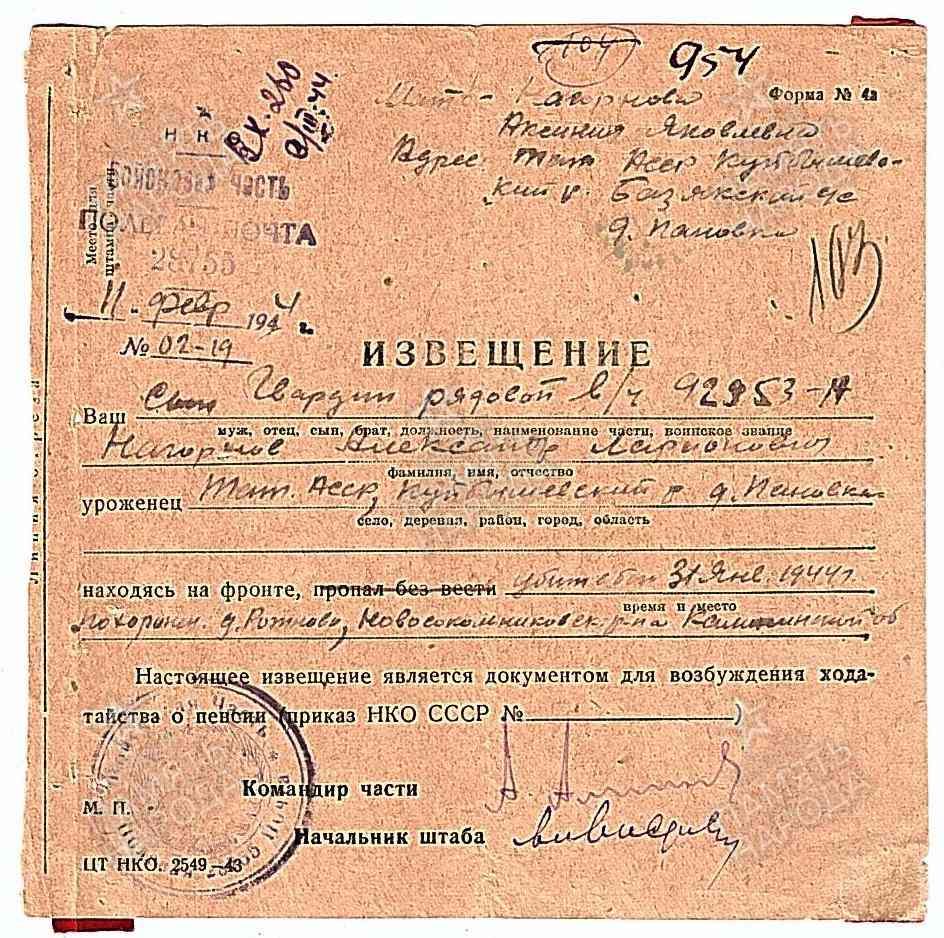 104
954
Форма № 4а
Вх. 260
9/III.44.
Аксиния Яковлевна
Адрес. Тат Асср Куйбышев-
ский р. Базякский с/с
д. Пановка
103
НК
Войсковая часть
ПОЛЕВАЯ ПОЧТА
28755
Место для
штампа части
11. февр 1944 г.
№ 02-19
ИЗВЕЩЕНИЕ
Ваш сын Гвардии рядовой в/ч 92953-А
муж, отец, сын, брат, должность, наименование части, воинское звание
Александр Ларионович
фамилия, имя, отчество
уроженец Тат. Асср, Куйбышевский р д. Пановка
село, деревня, район, город, область
Линия отреза
находясь на фронте, пропал без вести убит 31 янв. 1944 г.
время и место
похоронен д. Рожново, Новосокольниковск. р-на Калининской об
Настоящее извещение является документом для возбуждения хода-
тайства о пенсии (приказ НКО СССР №)
Командир части
М. П.
Начальник штаба
ЦТ НКО. 2549—43
ПАМЯТЬ НАРОДА